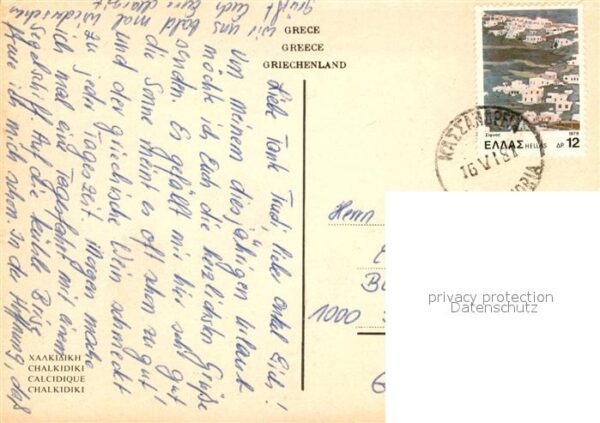 GRECE
GREECE
GRIECHENLAND
Liebe Tante Trudi, lieber Onkel Erich!
Von meinem diesjährigen Urlaub
möchte ich Euch die herzlichsten Grüße
senden. Es gefällt mir hier sehr gut
die Sonne meint es oft schon zu gut!
und der griechische Wein schmeckt
zu jeder Tageszeit. Morgen mache
ich mal eine Tagesfahrt mit einem
Segelschiff. Auf die kühle Brise
freue ich mich schon. In der Hoffnung, daß
wir uns bald mal
wiedersehen
grüßt Euch Eure
ΧΑΛΚΙΔΙΚΗ
CHALKIDIKI
CALCIDIQUE
CHALKIDIKI
1979
ΕΛΛΑΣ HELLAS ΔΡ. 12
ΚΑΣΣΑΝΔΡΕΙΑ
16 VI 81
1000
privacy protection
Datenschutz